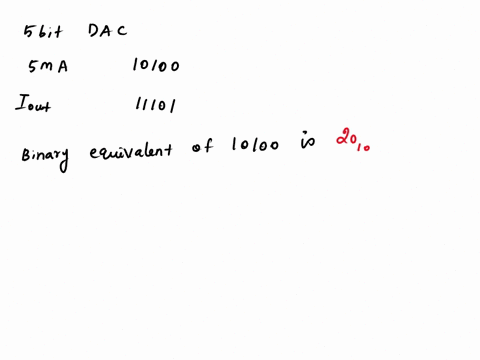 5bit DAC
5mA 10100
Iout 11101
Binary equivalent of 10100 is 20₁₀